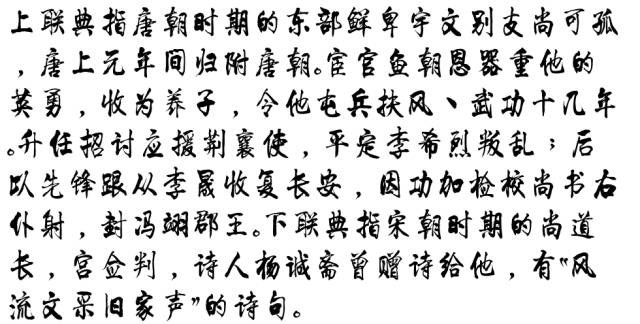 上联典指唐朝时期的东部鲜卑宇文别支尚可孤
，唐上元年间归附唐朝。宦官鱼朝恩器重他的
英勇，收为养子，令他屯兵扶风、武功十几年
。升任招讨应援荆襄使，平定李希烈叛乱；后
以先锋跟从李晟收复长安，因功加检校尚书右
仆射，封冯翊郡王。下联典指宋朝时期的尚道
长，官佥判，诗人杨诚斋曾赠诗给他，有“风
流文采旧家声”的诗句。